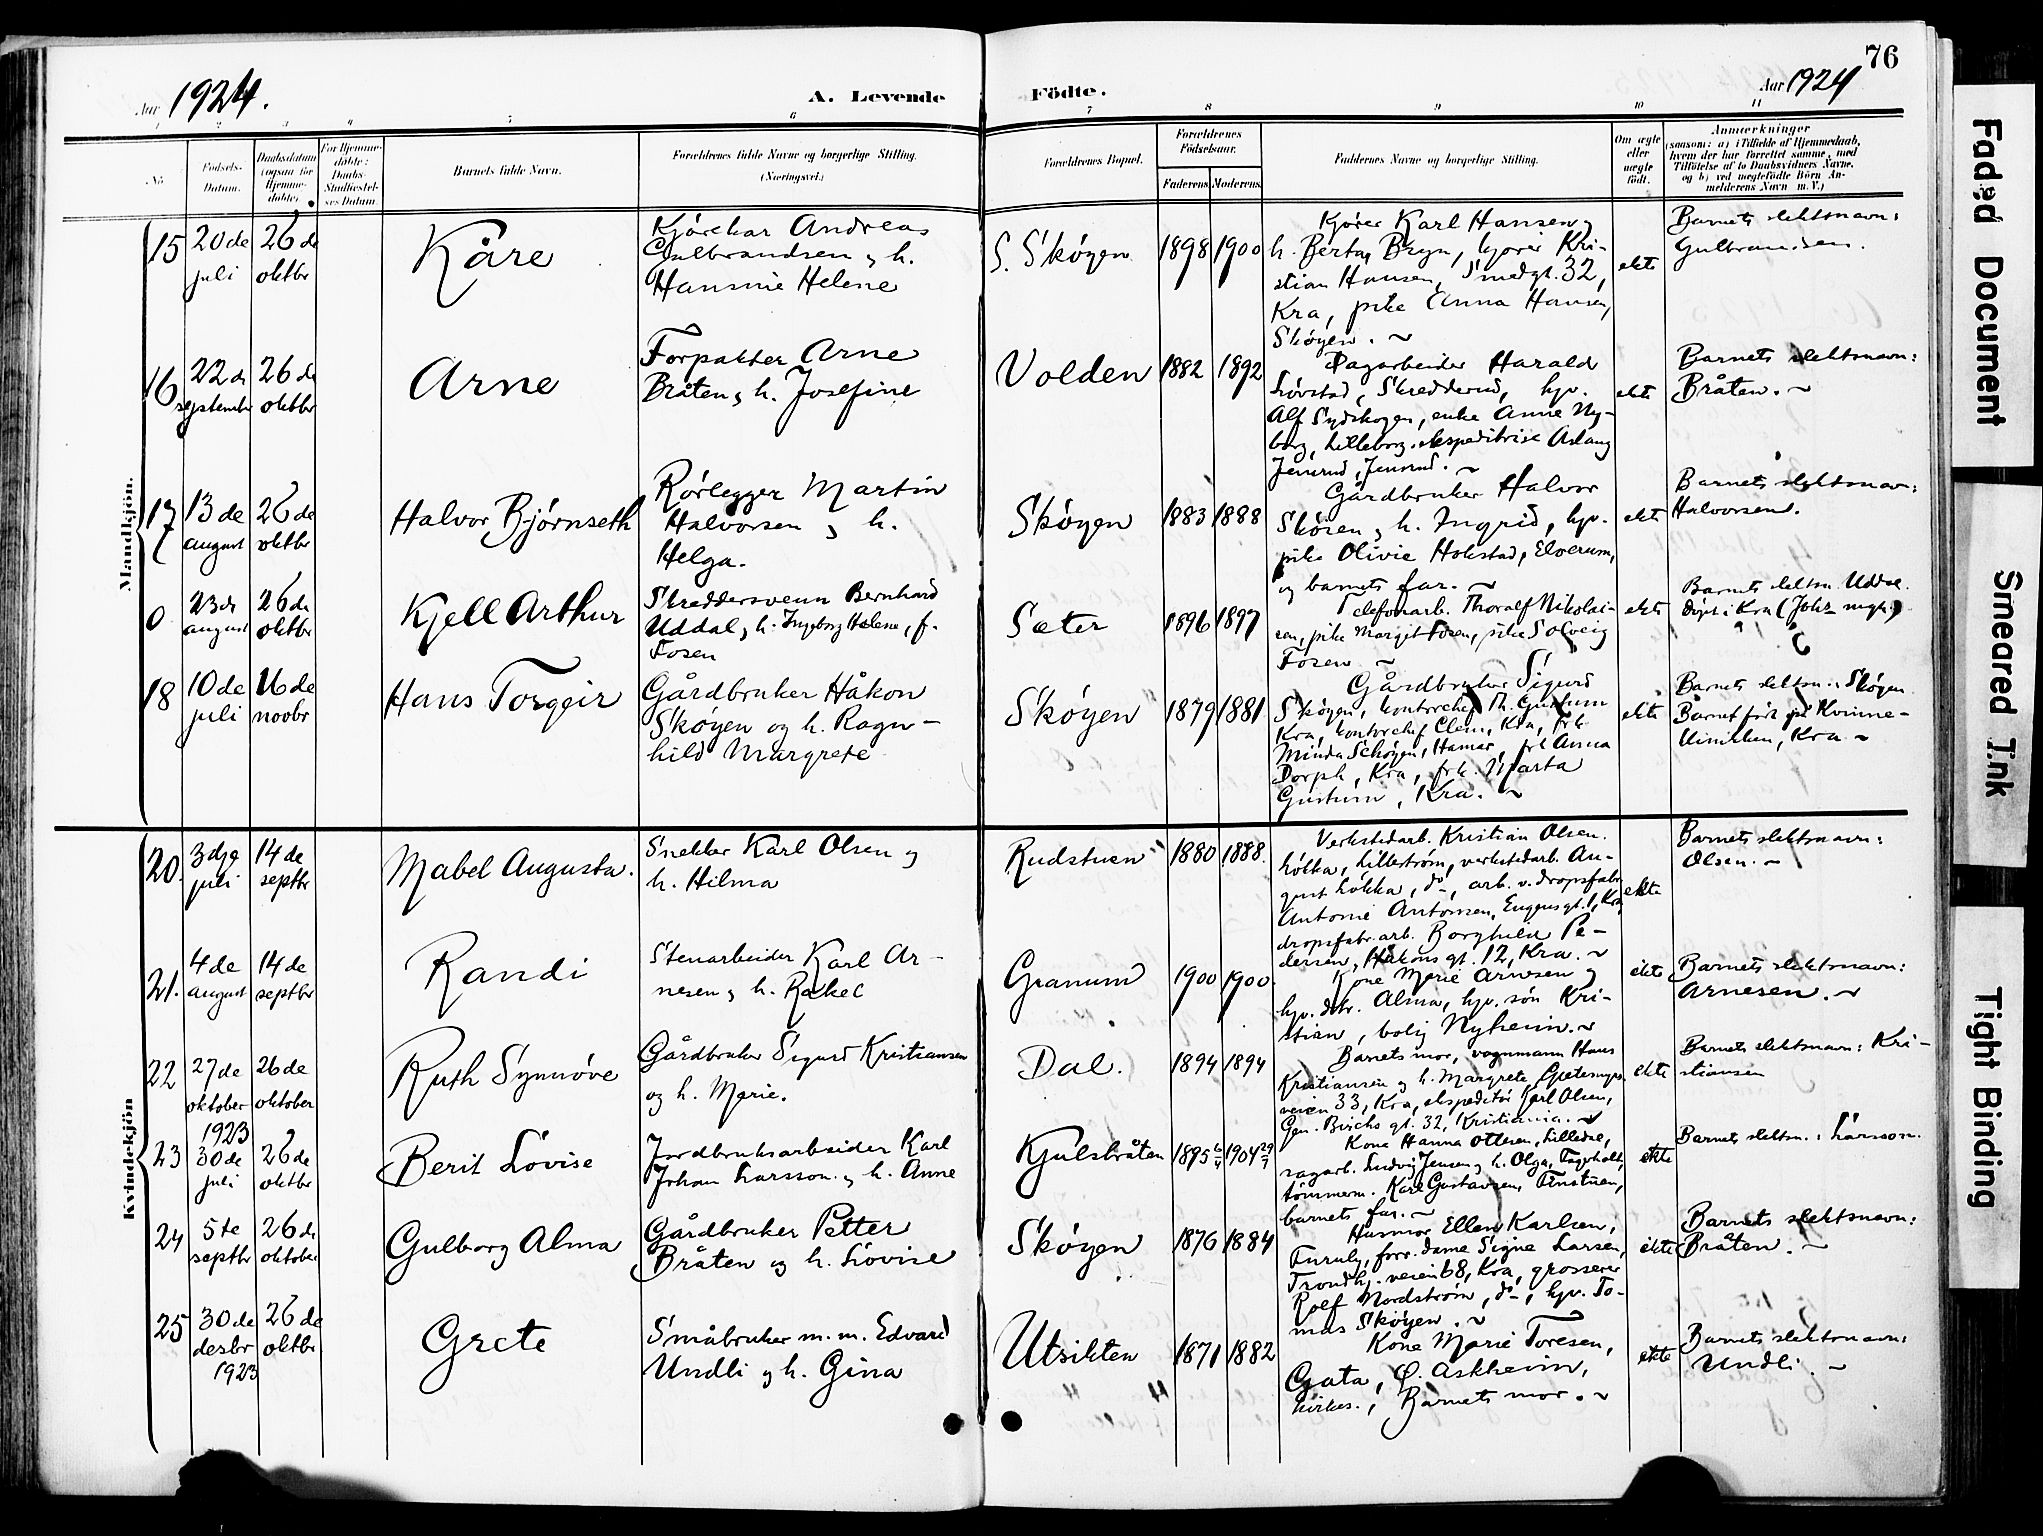 76
Aar 1924.
A. Levende
Födte.
Aar 1924
1 2 3 4 5 6 7 8 9 10 11
No
Fødsels-
Datum.
Daabsdatum
(ogsaa for
Hjemme-
døbte).
For Hjemme-
døbte:
Daabs-
Stadfæstel-
ses Datum.
Barnets fulde Navn.
Forældrenes fulde Navne og borgerlige Stilling.
(Næringsvei.)
Forældrenes Bopæl.
Forældrenes
Födselsaar.
Faderens
Moderens
Faddernes Navne og borgerlige Stilling.
Om ægte
eller
uægte
født.
Anmærkninger
(saasom: a) i Tilfælde af Hjemmedaab,
hvem der har forrettet samme, med
Tilföielse af to Daabsvidners Navne,
og b) ved uægtefödte Börn An-
melderens Navn m. V.)
Mandkjön.
15
20 de
juli
26 de
oktbr
Kåre
Kjørekar Andreas
Gulbrandsen og h.
Hansine Helene
S. Skøyen
1898
1900
Kjører Karl Hansen og
h. Berta, Bryn, kjører Kri-
stian Hansen, Smedgt. 32,
Kra, pike Anna Hansen,
Skøyen. ~
ekte
Barnets slektsnavn:
Gulbrandsen.
16
22 de
september
26 de
oktbr
Arne
Forpakter Arne
Bråten og h. Josefine
Volden
1882
1892
Dagarbeider Harald
Løvstad, Skredderud, hp.
Alf Sydskogen, enke Anne Ny-
borg, Lilleborg, ekspeditrise Aslaug
Jensrud, Jensrud. ~
ekte
Barnets slektsnavn:
Bråten. ~
17
13 de
august
26 de
oktbr
Halvor Bjørnseth
Rørlegger Martin
Halvorsen og h.
Helga.
Skøyen
1883
1888
Gårdbruker Halvor
Skøien og h. Ingrid, hp.
pike Olivie Hokstad, Elverum,
og barnets far. ~
ekte
Barnets slektsnavn:
Halvorsen.
0
23 de
august
26 de
oktbr
Kjell Arthur
Skreddersvenn Bernhard
Uddal og h. Ingeborg Helene, f.
Fosen
Sæter
1896
1897
Telefonarb. Thoralf Nikolai-
sen, pike Margit Fosen, pike Solveig
Fosen ~
ekte
Barnets slektsn. Uddal.
Døpt i Kra (Johs mgh.)
18
10 de
juli
16 de
novbr
Hans Torgeir
Gårdbruker Håkon
Skøyen og h. Ragn-
hild Margrete
Skøyen
1879
1881
Gårdbruker Sigurd
Skøyen, kontorchef Th. Gustum
Kra, kontorchef Clem, Kra, frk
Minda Schøyen, Hamar, frk Anna
Dorph, Kra, frk. Marta
Gustum, Kra. ~
ekte
Barnets slektsn.: Skøyen
Barnet født på Kvinne-
klinikken, Kra ~
Kvindekjön
20.
3 dje
juli
14 de
septbr
Mabel Augusta.
Snekker Karl Olsen og
h. Hilma
Rudstuen
1880
1888.
Verkstedarb. Kristian Olsen.
Løkka, Lillestrøm, verkstedarb. Au-
gust Løkka, do, arb. v. dropsfabr.
Antonie Antonsen, Eugensgt. 1, Kra,
dropsfabr.arb. Borghild Pe-
dersen, Håkons gt. 12, Kra. ~
ekte
Barnets slektsnavn:
Olsen. ~
21.
4 de
august
14 de
septbr
Randi
Stenarbeider Karl Ar-
nesen og h. Rakel
Granum
1900
1900.
Kone Marie Arnesen og
hp. dtr. Alma, hp. søn Kri-
stian, bolig Nyheim. ~
ekte
Barnets slektsnavn:
Arnesen. ~
22
27 de
oktober
1923
26 de
oktober
Ruth Synnøve
Gårdbruker Sigurd Kristiansen
og h. Marie.
Dal.
1894
1894
Barnets mor, vognmann Hans
Kristiansen og h. Margrete, Gjetemyrs-
veien 33, Kra, ekspeditør Karl Olsen,
Gen. Birchs gt. 32, Kristiania. ~
ekte
Barnets slektsnavn: Kri-
stiansen
23
30 de
juli
26 de
oktbr
Berit Lovise
Jordbruksarbeider Karl
Johan Larsson og h. Anne
Kjulsbråten
1895 6/4
1904 29/7
Kone Hanna Ottesen, Lilledal,
sagarb. Ludvig Jensen og h. Olga, Fagerholt,
tømmerm. Karl Gustavsen, Finstuen,
barnets far. ~
ekte
Barnets slektsn.: Larsson.
24
5 te
septbr
26 de
oktober
Gulborg Alma
Gårdbruker Petter
Bråten og h. Lovise
Skøyen
1876
1884
Husmor Ellen Karlsen,
Furuly, forr.dame Signe Larsen,
Trondhj.veien 68, Kra, grosserer
Rolf Nordstrøm, do, hp. To-
mas Skøyen. ~
ekte
Barnets slektsnavn:
Bråten. ~
25
30 de
desbr
1923
26 de
oktbr
Grete
Småbruker m.m. Edvard
Undli og h. Gina
Utsikten
1871
1882
Kone Marie Toresen,
Gata, Ø. Askheim,
Kirkes., Barnets mor. ~
ekte
Barnets slektsnavn:
Undli. ~
Faded Document
Smeared Ink
Tight Binding